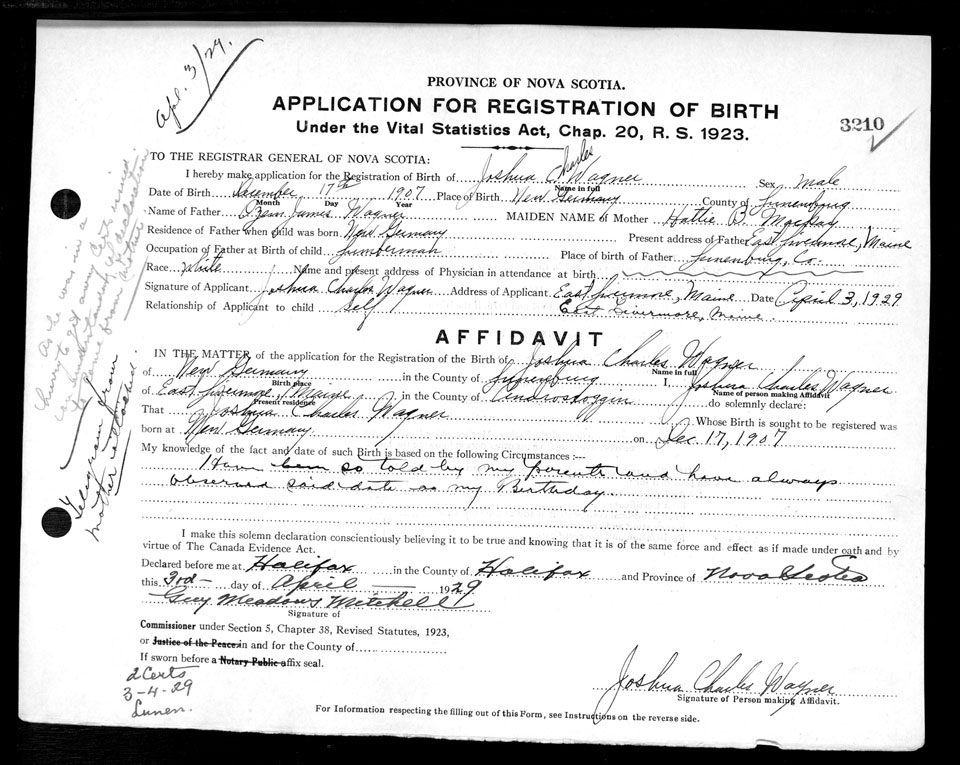 Apl. 3/29.
PROVINCE OF NOVA SCOTIA.
APPLICATION FOR REGISTRATION OF BIRTH
Under the Vital Statistics Act, Chap. 20, R. S. 1923.
3210
TO THE REGISTRAR GENERAL OF NOVA SCOTIA:
I hereby make application for the Registration of Birth of Joshua C. Charles Wagner Sex Male
Name in full
Date of Birth December 17th 1907 Place of Birth New Germany County of Lunenburg
Month Day Year
Name of Father Ozem James Wagner MAIDEN NAME of Mother Hattie B. MacKay
Residence of Father when child was born New Germany Present address of Father East Livermore, Maine
Occupation of Father at Birth of child Lumberman Place of birth of Father Lunenburg, Co.
Race White Name and present address of Physician in attendance at birth
Signature of Applicant Joshua Charles Wagner Address of Applicant East Livermore, Maine Date April 3, 1929
Relationship of Applicant to child Self East Livermore, Maine.
AFFIDAVIT
IN THE MATTER of the application for the Registration of the Birth of Joshua Charles Wagner
Name in full
of New Germany in the County of Lunenburg I, Joshua Charles Wagner
Birth place Name of person making Affidavit
of East Livermore, Maine in the County of Androscoggin do solemnly declare:
Present residence
That Joshua Charles Wagner Whose Birth is sought to be registered was
born at New Germany. on Dec 17, 1907
My knowledge of the fact and date of such Birth is based on the following Circumstances :--
I have been so told by my parents and have always
observed said date as my Birthday.
I make this solemn declaration conscientiously believing it to be true and knowing that it is of the same force and effect as if made under oath and by
virtue of The Canada Evidence Act.
Declared before me at Halifax in the County of Halifax and Province of Nova Scotia
this 3rd day of April 1929
Guy Meadows Mitchell
Signature of
Commissioner under Section 5, Chapter 38, Revised Statutes, 1923,
or Justice of the Peace in and for the County of
If sworn before a Notary Public affix seal.
2 Certs
3-4-29
Lunen.
Joshua Charles Wagner
Signature of Person making Affidavit.
For Information respecting the filling out of this Form, see Instructions on the reverse side.
As he was in a
hurry to get away Certs issued
Telegram from
mother attached.